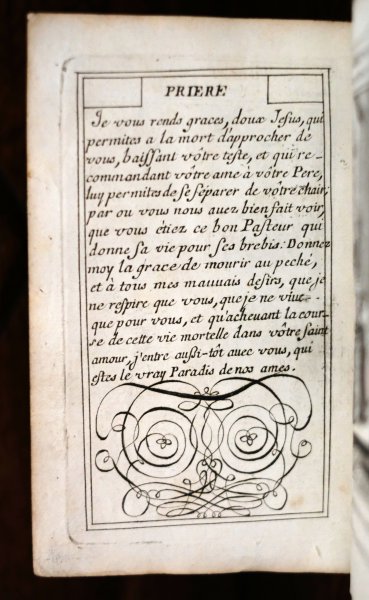 PRIERE
Je vous rends graces, doux Jesus, qui
permites a la mort d'approcher de
vous, baissant vôtre teste, et qui re-
commandant vôtre ame à vôtre Pere,
luy permites de se séparer de vôtre chair;
par ou vous nous avez bien fait voir,
que vous étiez ce bon Pasteur qui
donne sa vie pour ses brebis: Donnez
moy la grace de mourir au peché,
et à tous mes mauuais desirs, que je
ne respire que vous, que je ne viue
que pour vous, et qu'acheuant la cour-
se de cette vie mortelle dans vôtre saint
amour, j'entre aussi-tôt auec vous, qui
estes le vray Paradis de nos ames.